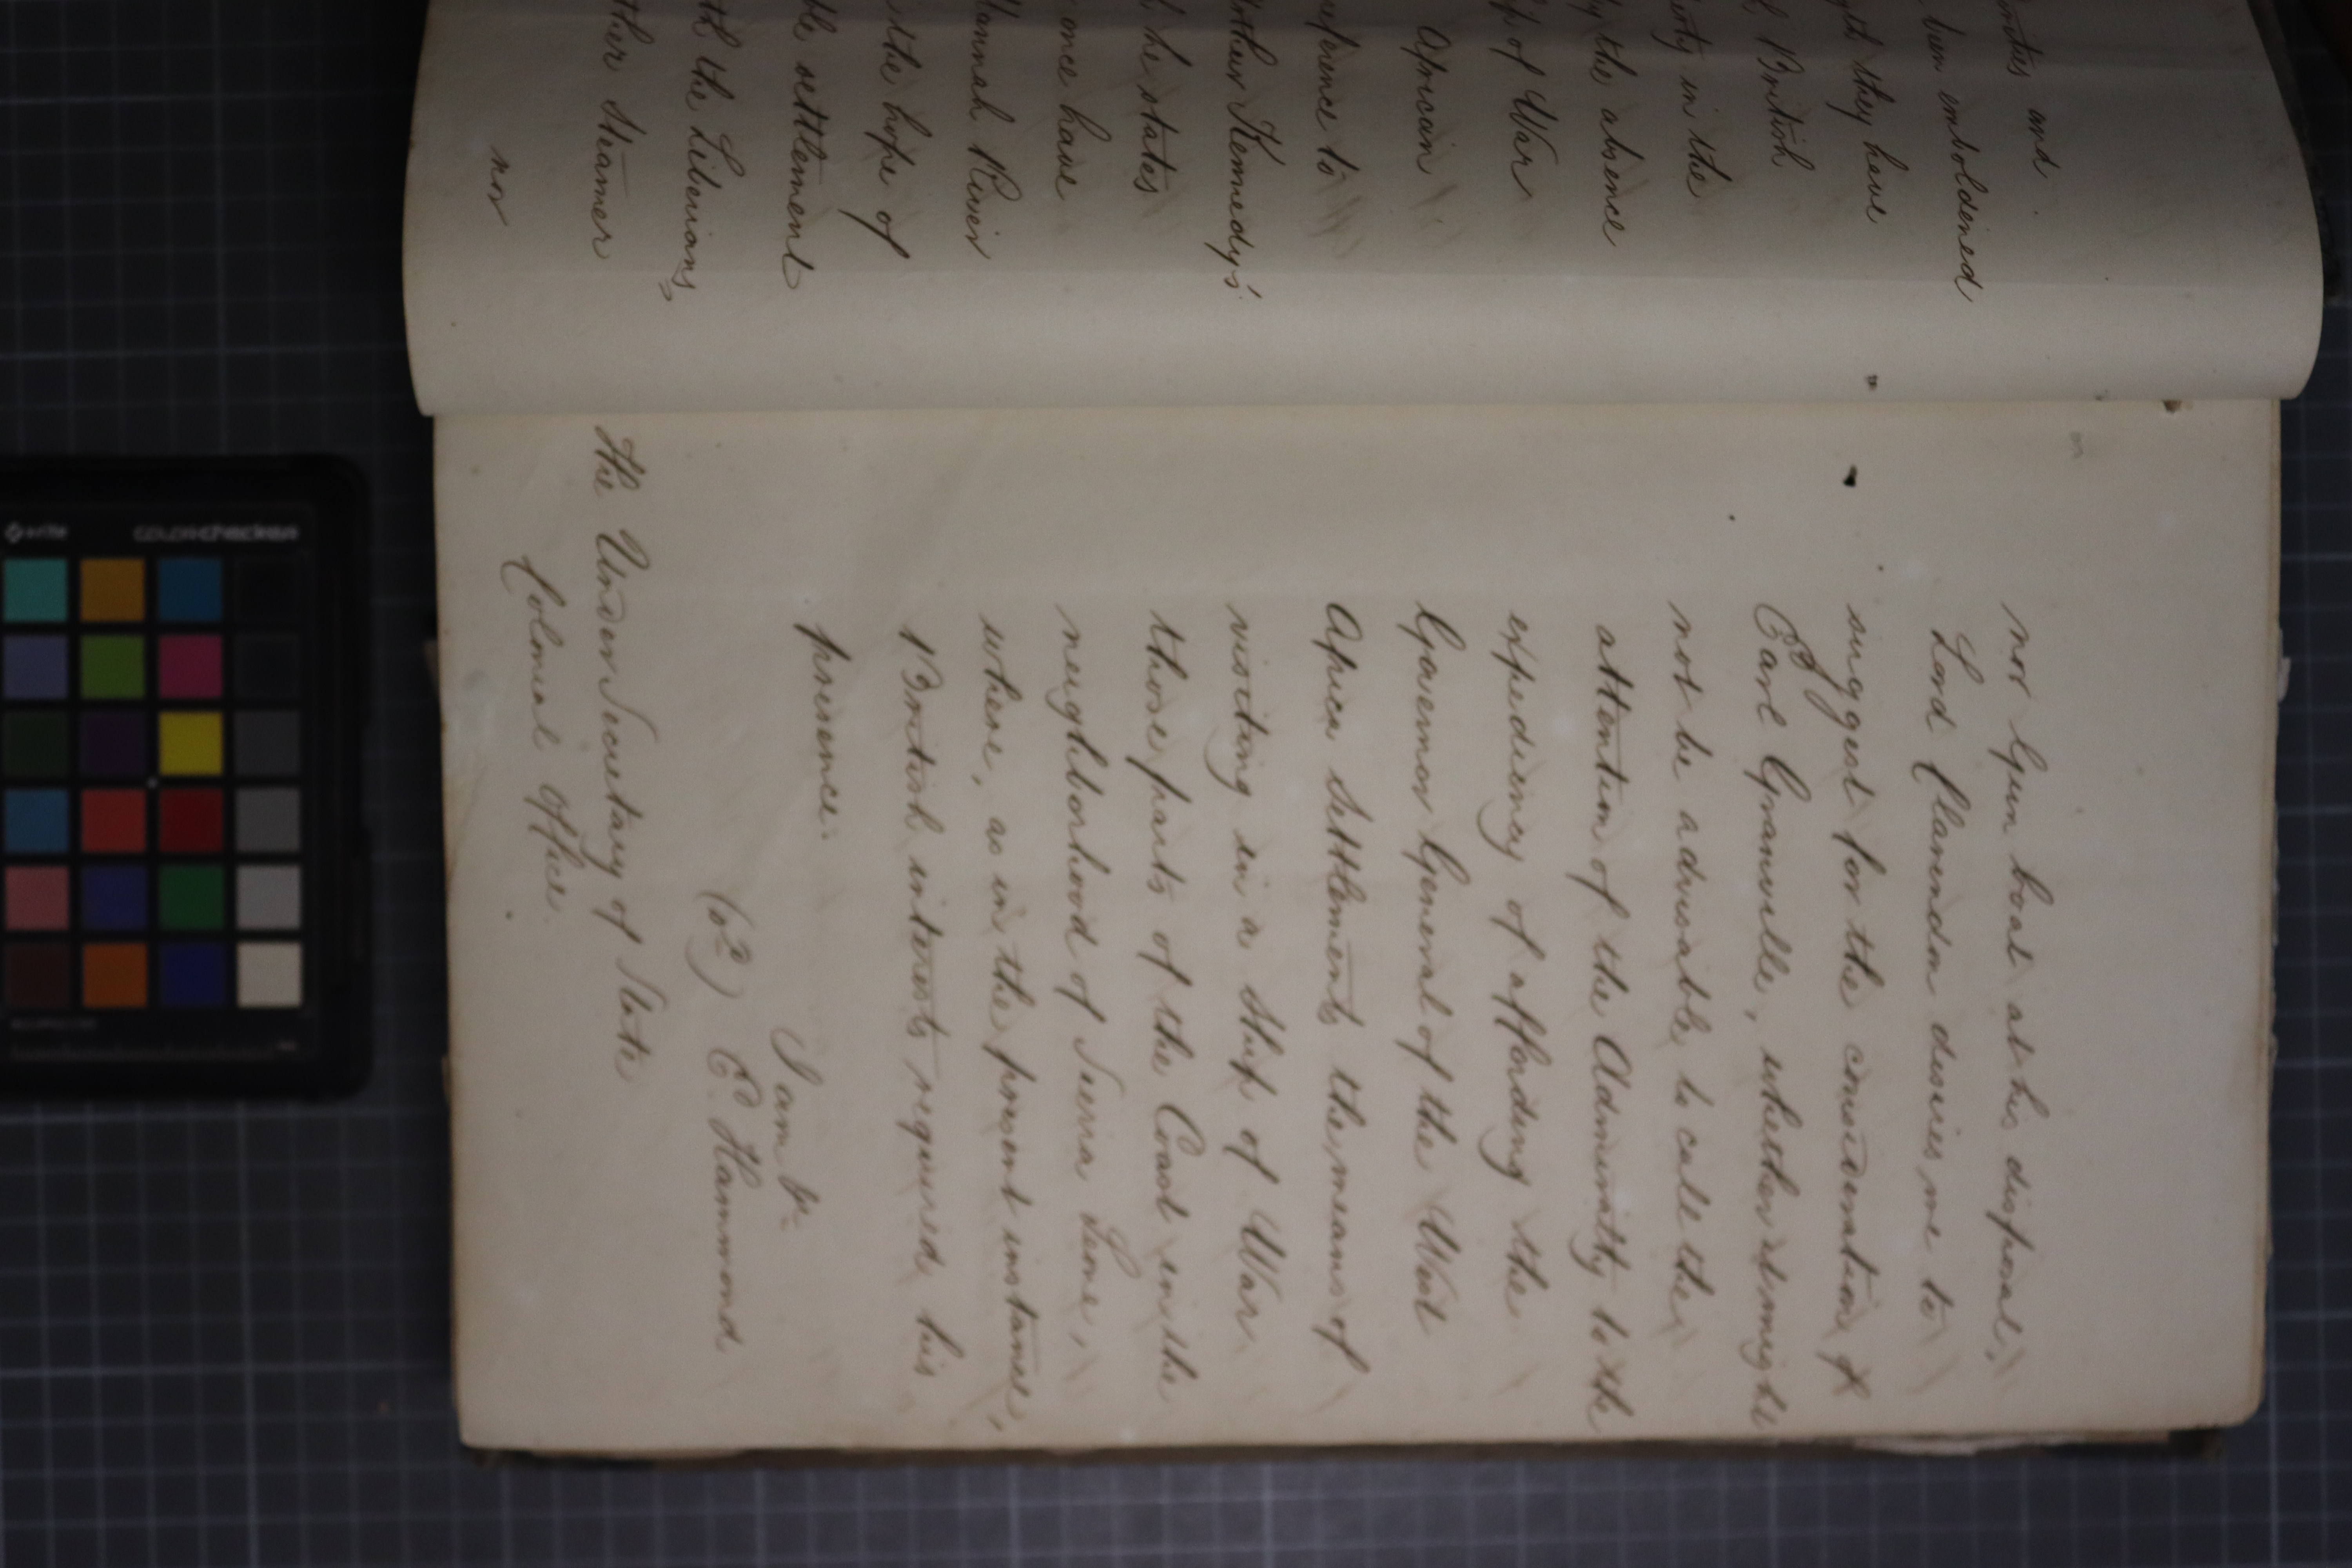 and
been emboldened
they have
British
in the
the absence
of War
African
reference to
Arthur Kennedy's
he states
once have
Mannah River
the hope of
settlement
the Liberians,
Steamer
nor
nor Gun boat at his disposal,
Lord Clarendon desires me to
suggest for the consideration of
Earl Granville, whether it might
not be advisable to call the
attention of the Admiralty to the
expediency of affording the
Governor General of the West
Africa Settlements the means of
visiting in a Ship of War
those parts of the Coast in the
neighborhood of Sierra Leone,
where, as in the present instance,
British interests required his
presence.
I am &c
(sd) E. Hammond
The Under Secretary of State
Colonial Office.
colorchecker